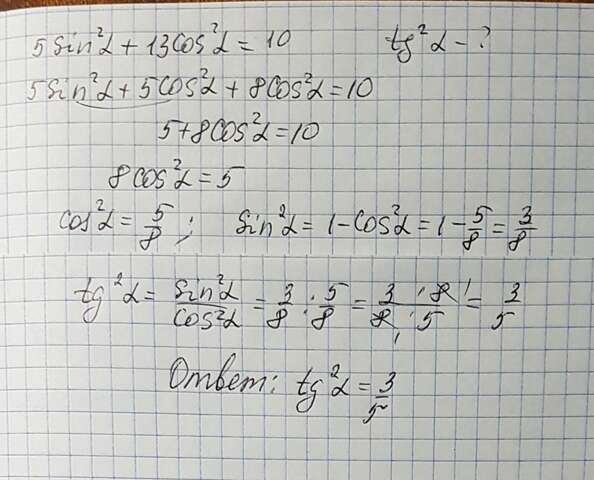 5sin²α + 13cos²α = 10 tg²α - ?
5sin²α + 5cos²α + 8cos²α = 10
5 + 8cos²α = 10
8cos²α = 5
cos²α = 5/8 ; sin²α = 1 - cos²α = 1 - 5/8 = 3/8
tg²α = sin²α/cos²α = 3/8 : 5/8 = 3 · 8/8 · 5 = 3/5
Ответ: tg²α = 3/5